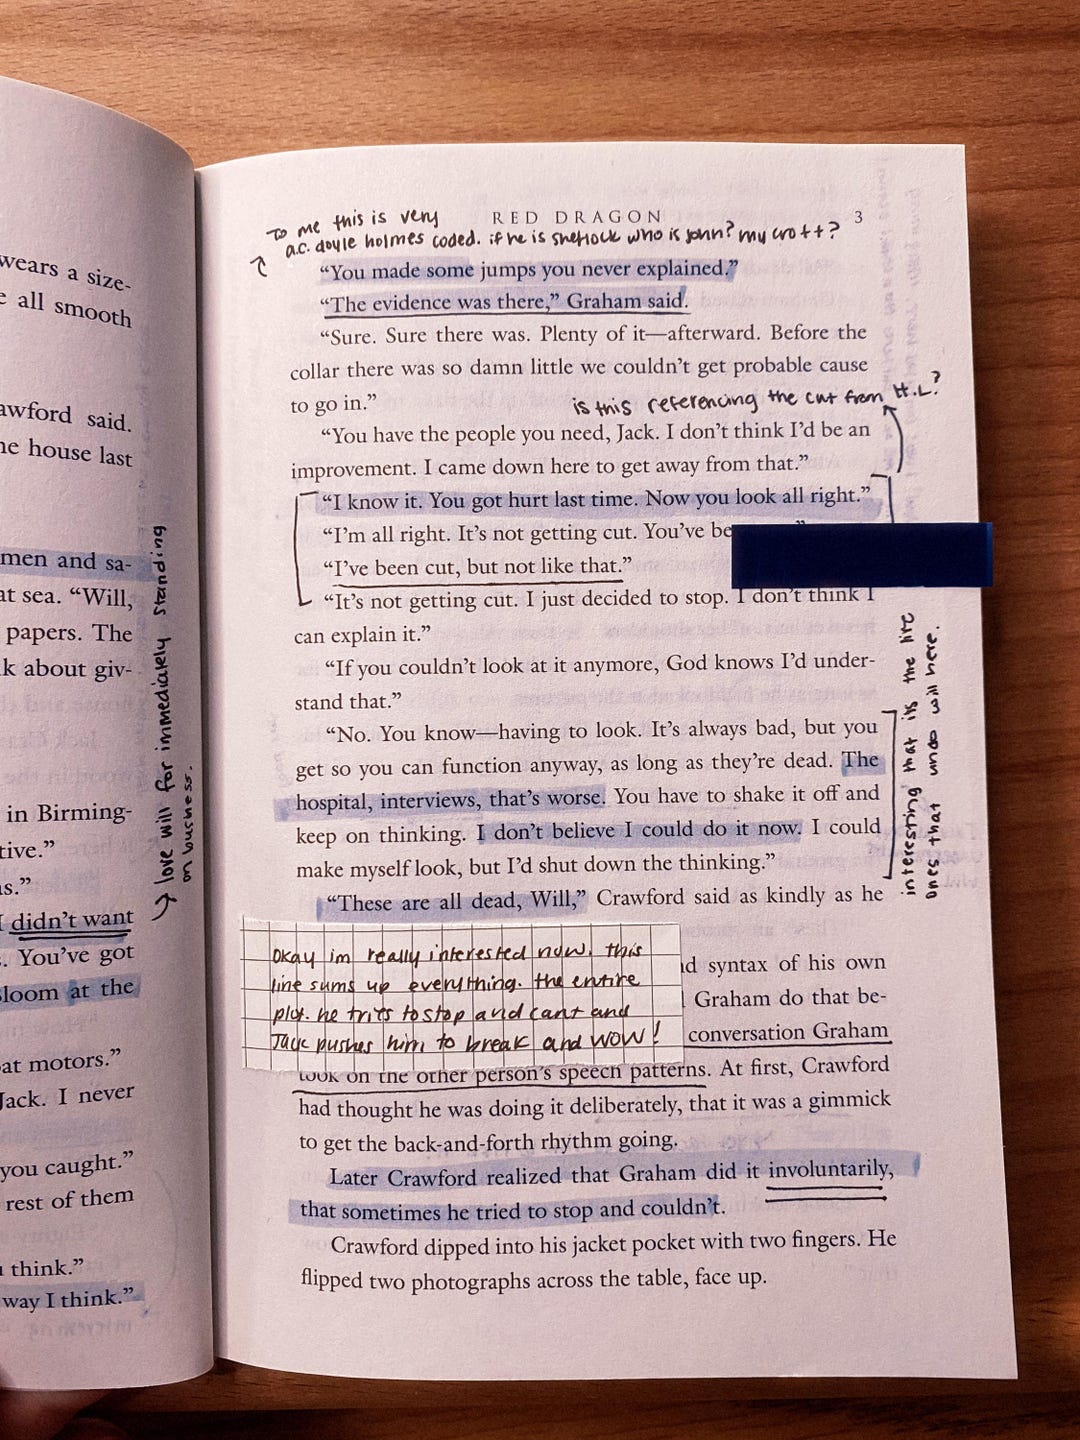 wears a size-
e all smooth
awford said.
he house last
men and sa-
at sea. “Will,
papers. The
k about giv-
in Birming-
tive.”
s.”
I didn’t want
. You’ve got
loom at the
at motors.”
Jack. I never
you caught.”
rest of them
think.”
way I think.”
→ love will for immediately standing
on business.
RED DRAGON 3
To me this is very
a.c. doyle holmes coded. if he is sherlock who is john? mycroft?
“You made some jumps you never explained.”
“The evidence was there,” Graham said.
“Sure. Sure there was. Plenty of it—afterward. Before the
collar there was so damn little we couldn’t get probable cause
to go in.”
is this referencing the cut from H.L?
“You have the people you need, Jack. I don’t think I’d be an
improvement. I came down here to get away from that.”
“I know it. You got hurt last time. Now you look all right.”
“I’m all right. It’s not getting cut. You’ve be
“I’ve been cut, but not like that.”
“It’s not getting cut. I just decided to stop. I don’t think I
can explain it.”
“If you couldn’t look at it anymore, God knows I’d under-
stand that.”
“No. You know—having to look. It’s always bad, but you
get so you can function anyway, as long as they’re dead. The
hospital, interviews, that’s worse. You have to shake it off and
keep on thinking. I don’t believe I could do it now. I could
make myself look, but I’d shut down the thinking.”
interesting that its the live
ones that undo will here.
“These are all dead, Will,” Crawford said as kindly as he
okay im really interested now. this
line sums up everything. the entire
plot. he tries to stop and cant and
Jack pushes him to break and wow!
d syntax of his own
Graham do that be-
conversation Graham
took on the other person’s speech patterns. At first, Crawford
had thought he was doing it deliberately, that it was a gimmick
to get the back-and-forth rhythm going.
Later Crawford realized that Graham did it involuntarily,
that sometimes he tried to stop and couldn’t.
Crawford dipped into his jacket pocket with two fingers. He
flipped two photographs across the table, face up.